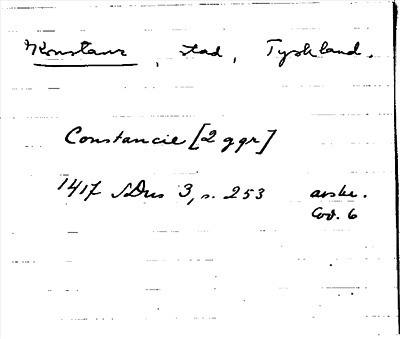 Konstanz, stad, Tyskland.
Constancie [2 ggr]
1417 SDns 3, s. 253 avskr.
Cod. 6